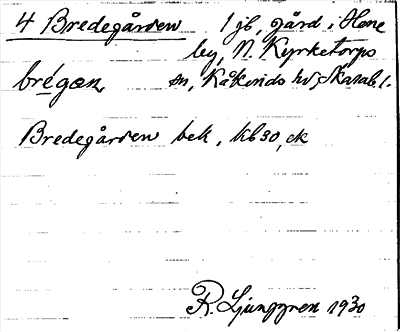 4 Bredegården 1 jb, gård i Hene
by, N. Kyrketorps
brégan, sn, Kåkinds hd, Skarab. l.
Bredegården bek, kb 30, ek
R. Ljunggren 1930